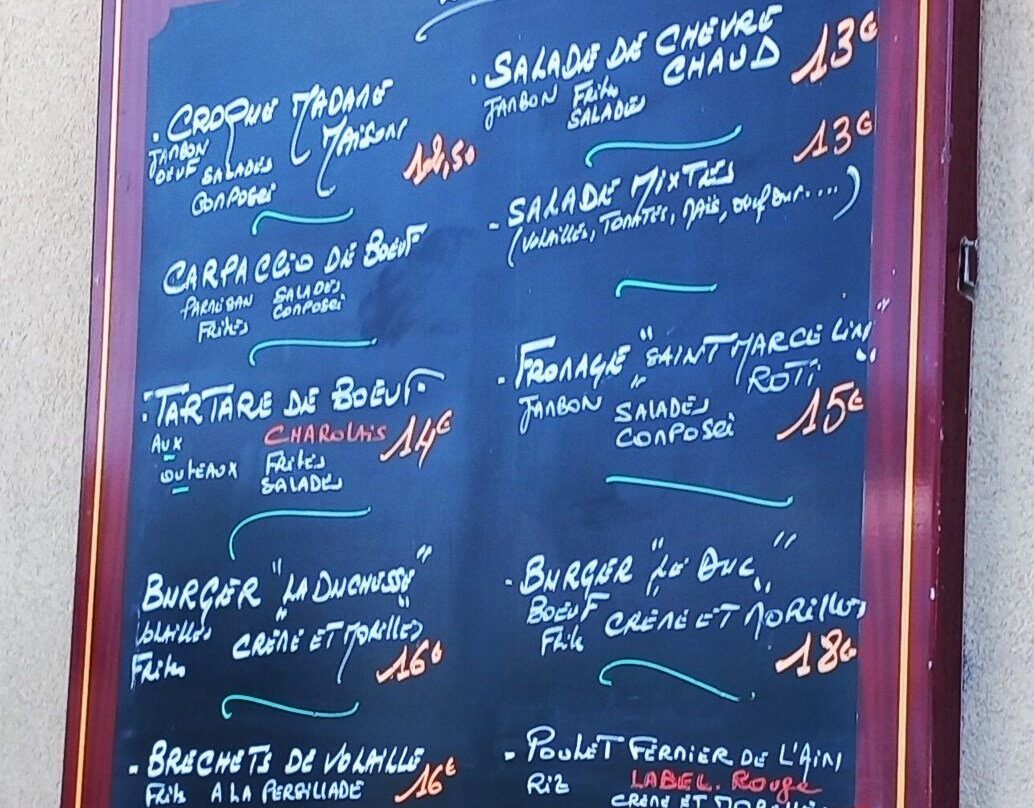 . CROQUE MADAME
MAISON
JAMBON
OEUF SALADES
COMPOSEI
CARPACCIO DE BOEUF
PARMESAN SALADES
COMPOSEI
FRITES
. TARTARE DE BOEUF
AUX CHAROLAIS 14€
COUTEAUX FRITES
SALADES
BURGER "LA DUCHESSE"
VOLAILLES CRÈME ET MORILLES
FRITES 16€
- BRECHETS DE VOLAILLE
FRITES A LA PERSILLADE 16€
. SALADE DE CHEVRE
CHAUD 13€
JAMBON FRITES
SALADES
13€
- SALADE MIXTES
(VOLAILLES, TOMATES, MAIS, OEUF DUR....)
. FROMAGE "SAINT MARCELLIN"
ROTI
JAMBON SALADES 15€
COMPOSEI
- BURGER "LE DUC"
BOEUF CRÈME ET MORILLES
FRITES
18€
- POULET FERMIER DE L'AIN
RIZ LABEL. ROUGE
CRÈME ET MORILLES